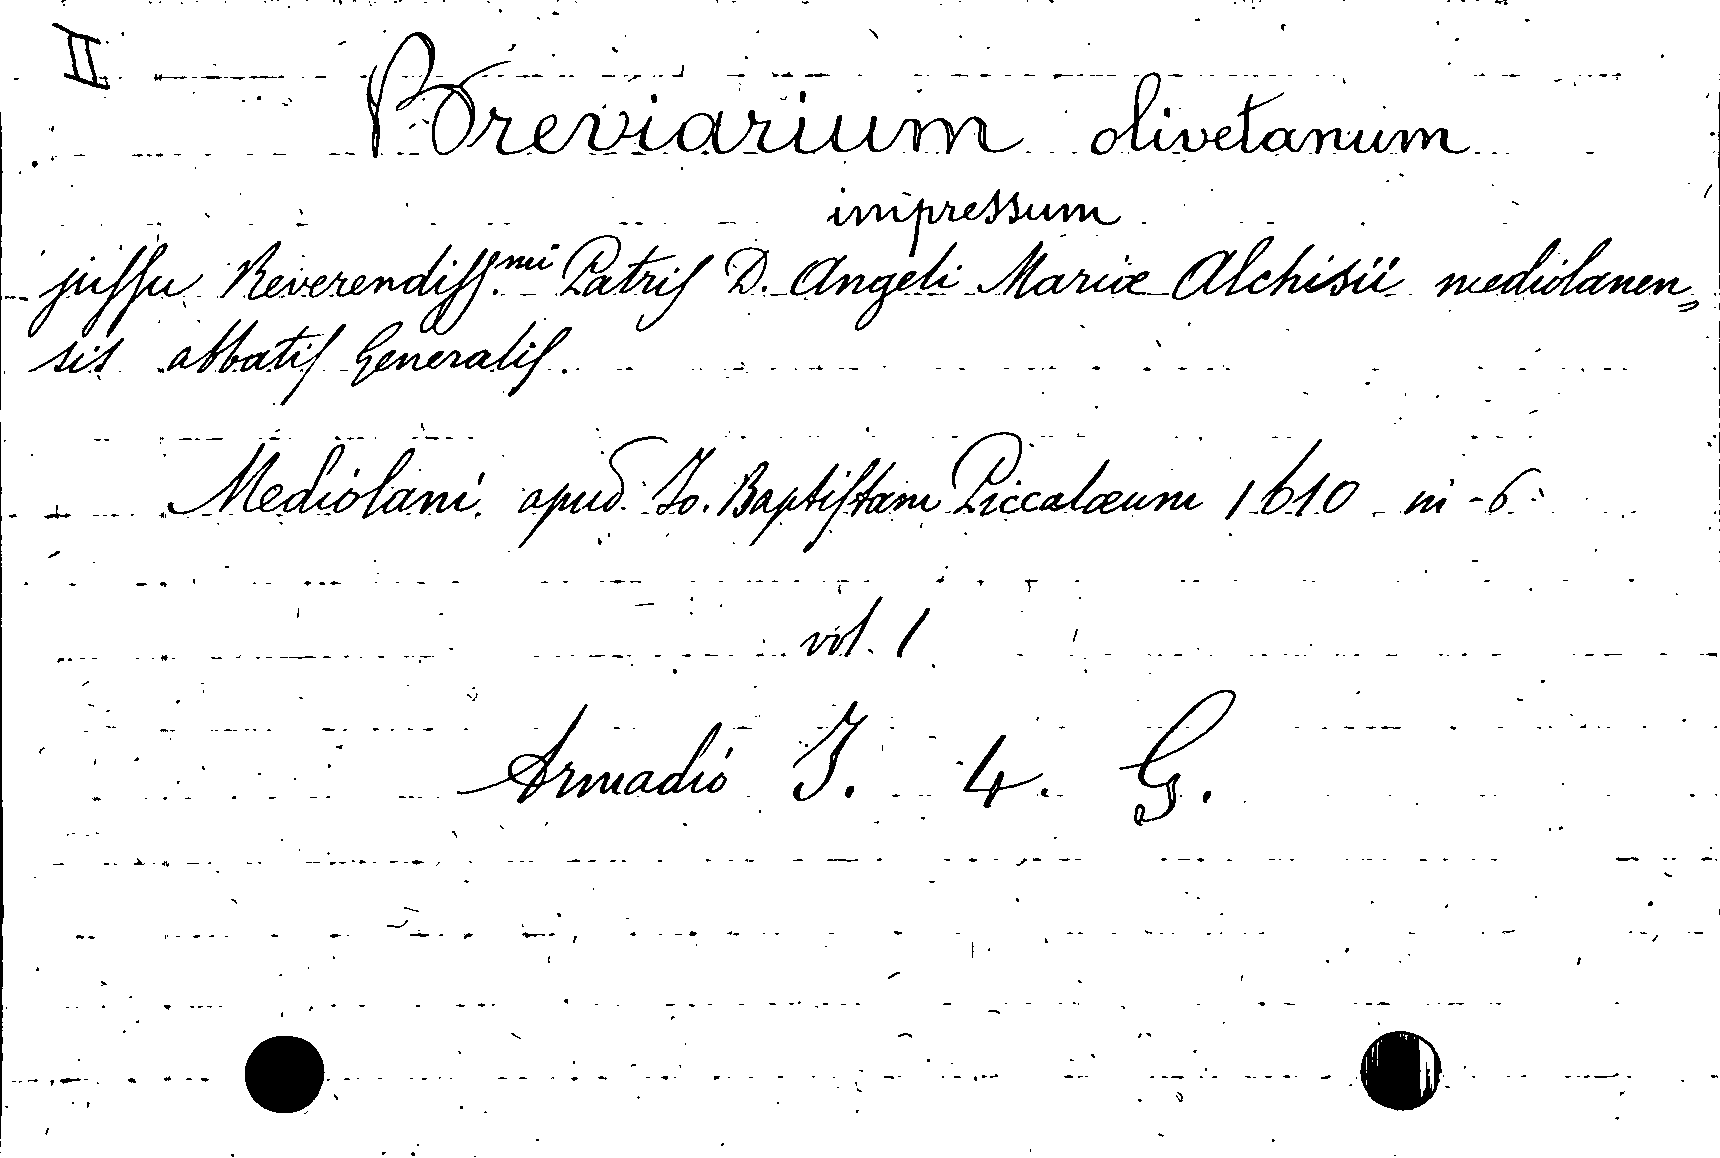 II
Breviarium olivetanum
impressum
jussu Reverendiss.mi Patris D. Angeli Mariæ Alchisii mediolanen„
sis abbatis Generalis.
Mediolani. apud. Io. Baptistam Piccalæum 1610 in-6
vol. 1
Armadio I. 4. G.